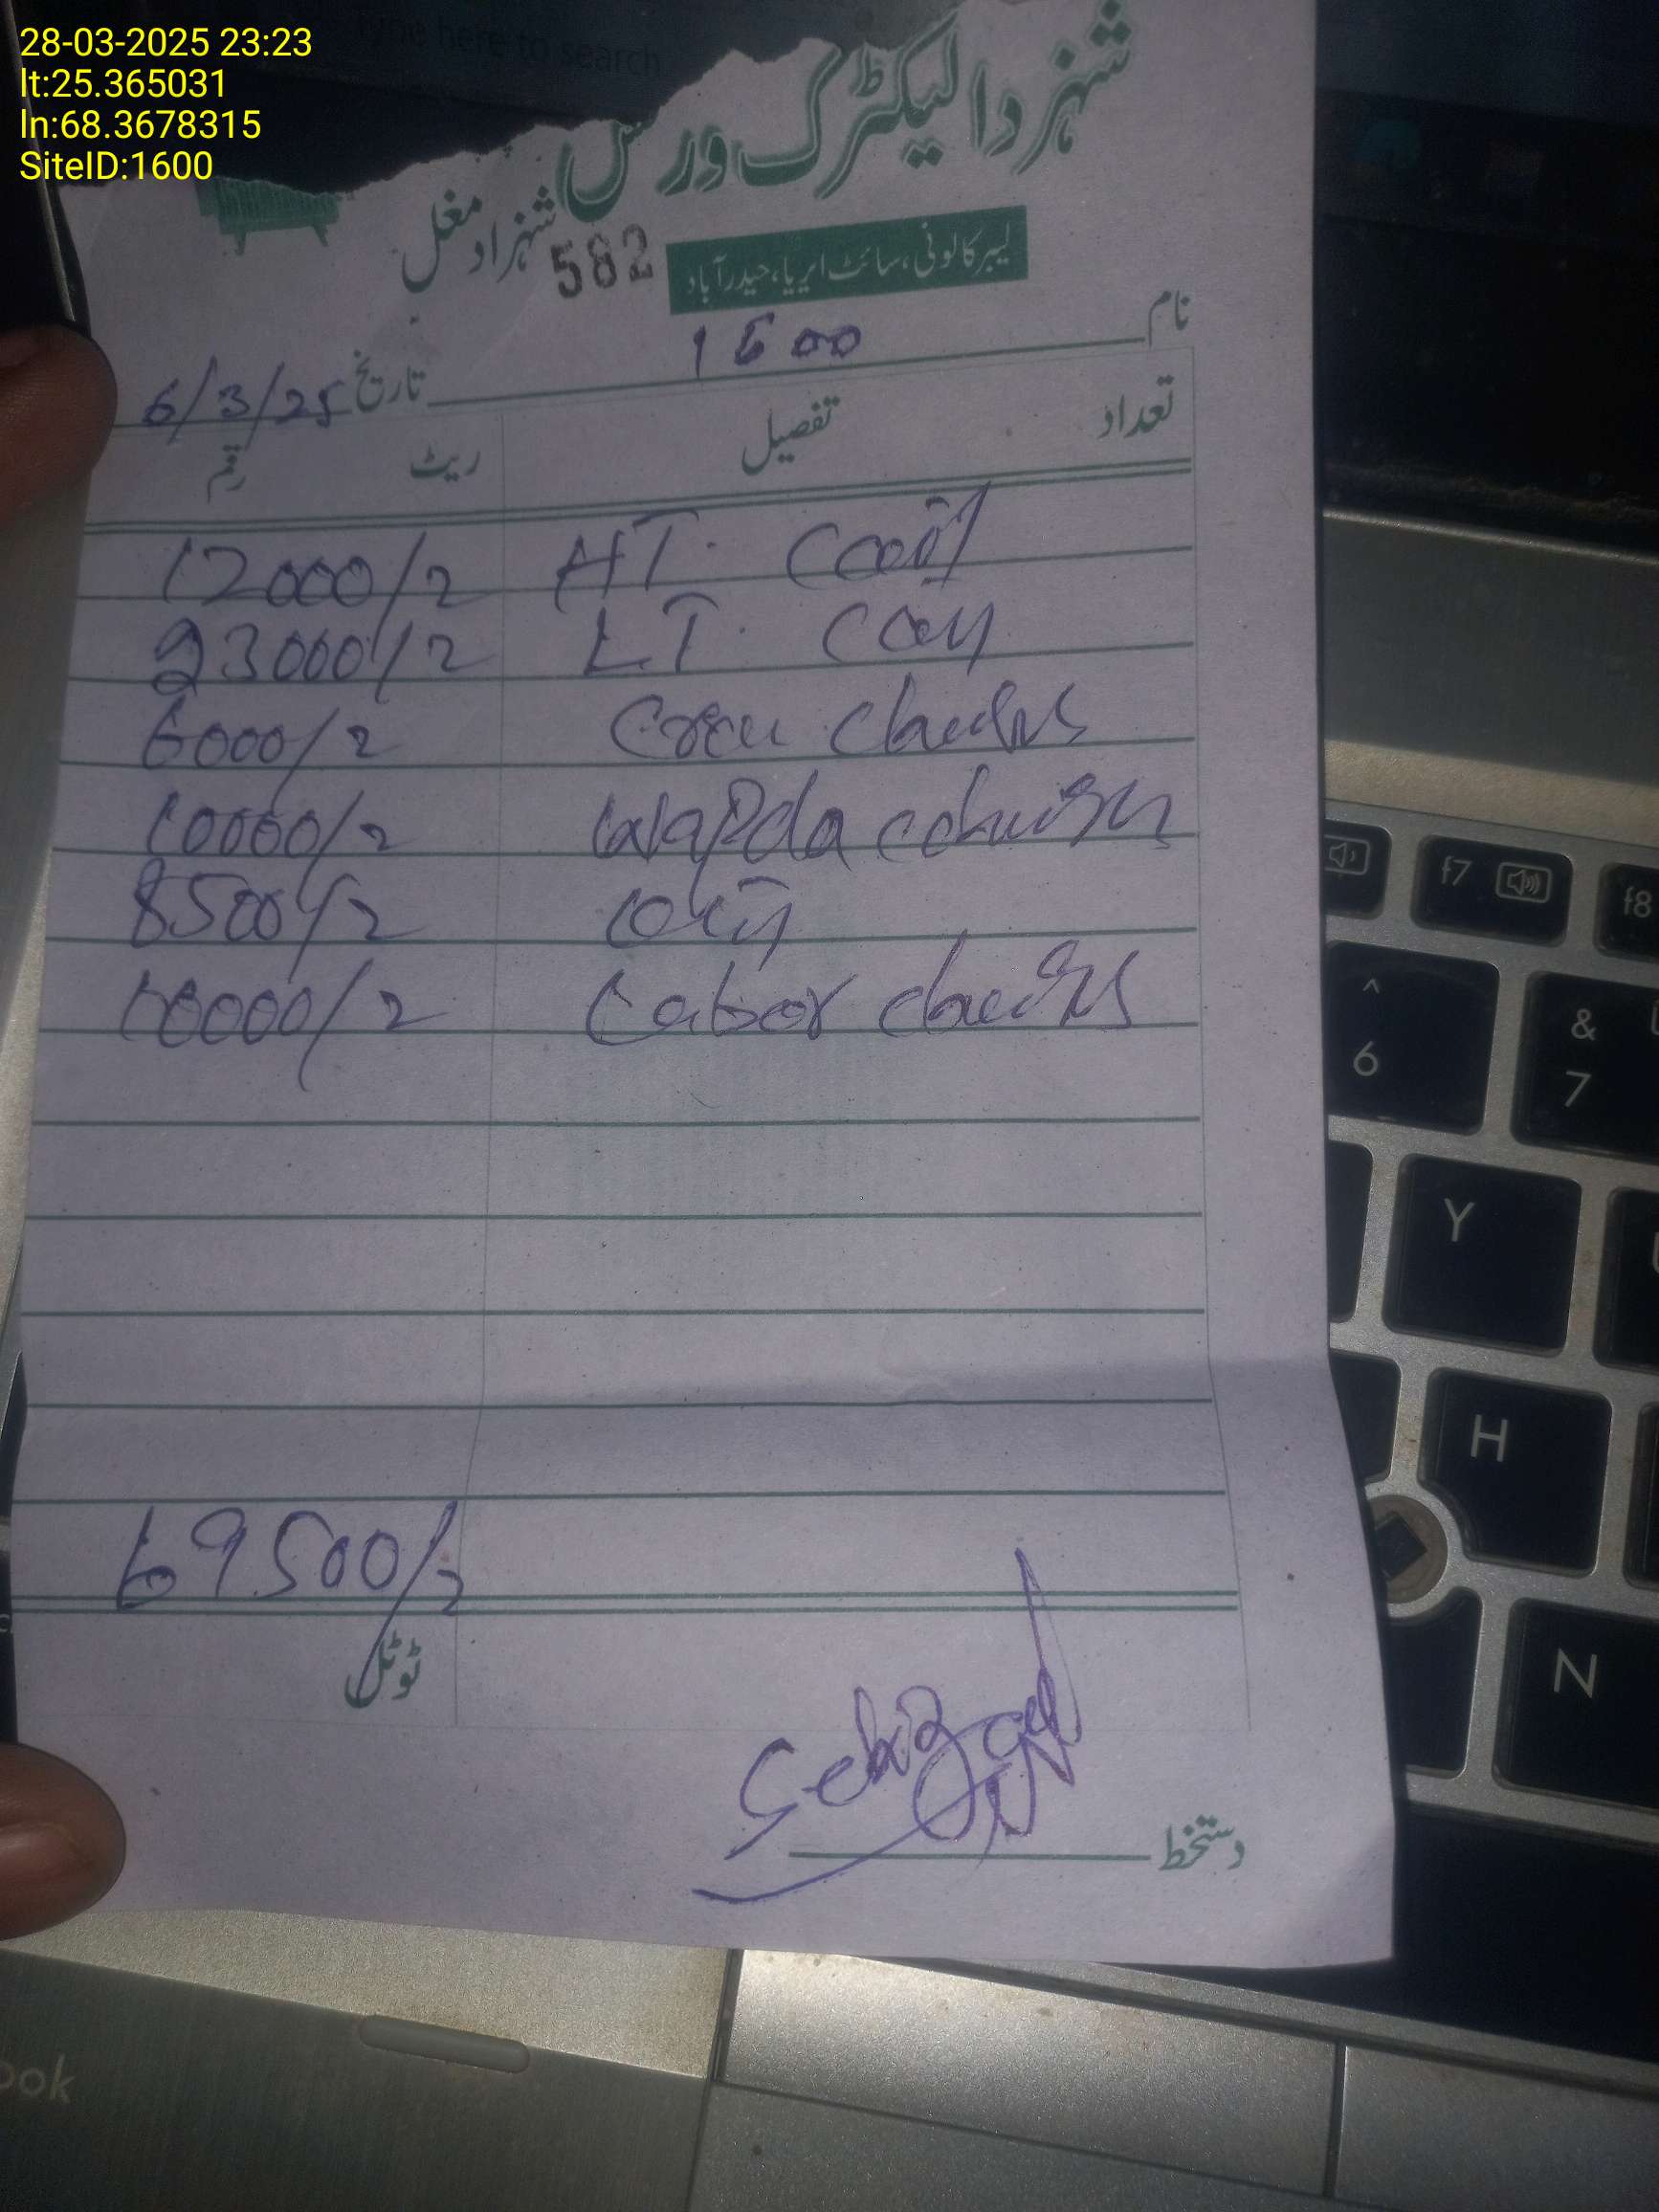 28-03-2025 23:23
lt:25.365031
ln:68.3678315
SiteID:1600
Type here to search
شہزادالیکٹرک ورکس
شہزاد مغل
582
لیبر کالونی، سائٹ ایریا، حیدرآباد
نام 1600
تاریخ 6/3/25
تعداد تفصیل ریٹ رقم
HT. Coil 12000/2
LT. Coil 23000/2
6000/2
Wapda 10000/2
8500/2
Labor 10000/2
69500/2
ٹوٹل
دستخط
f7
f8
^
6
&
7
Y
H
N
ook